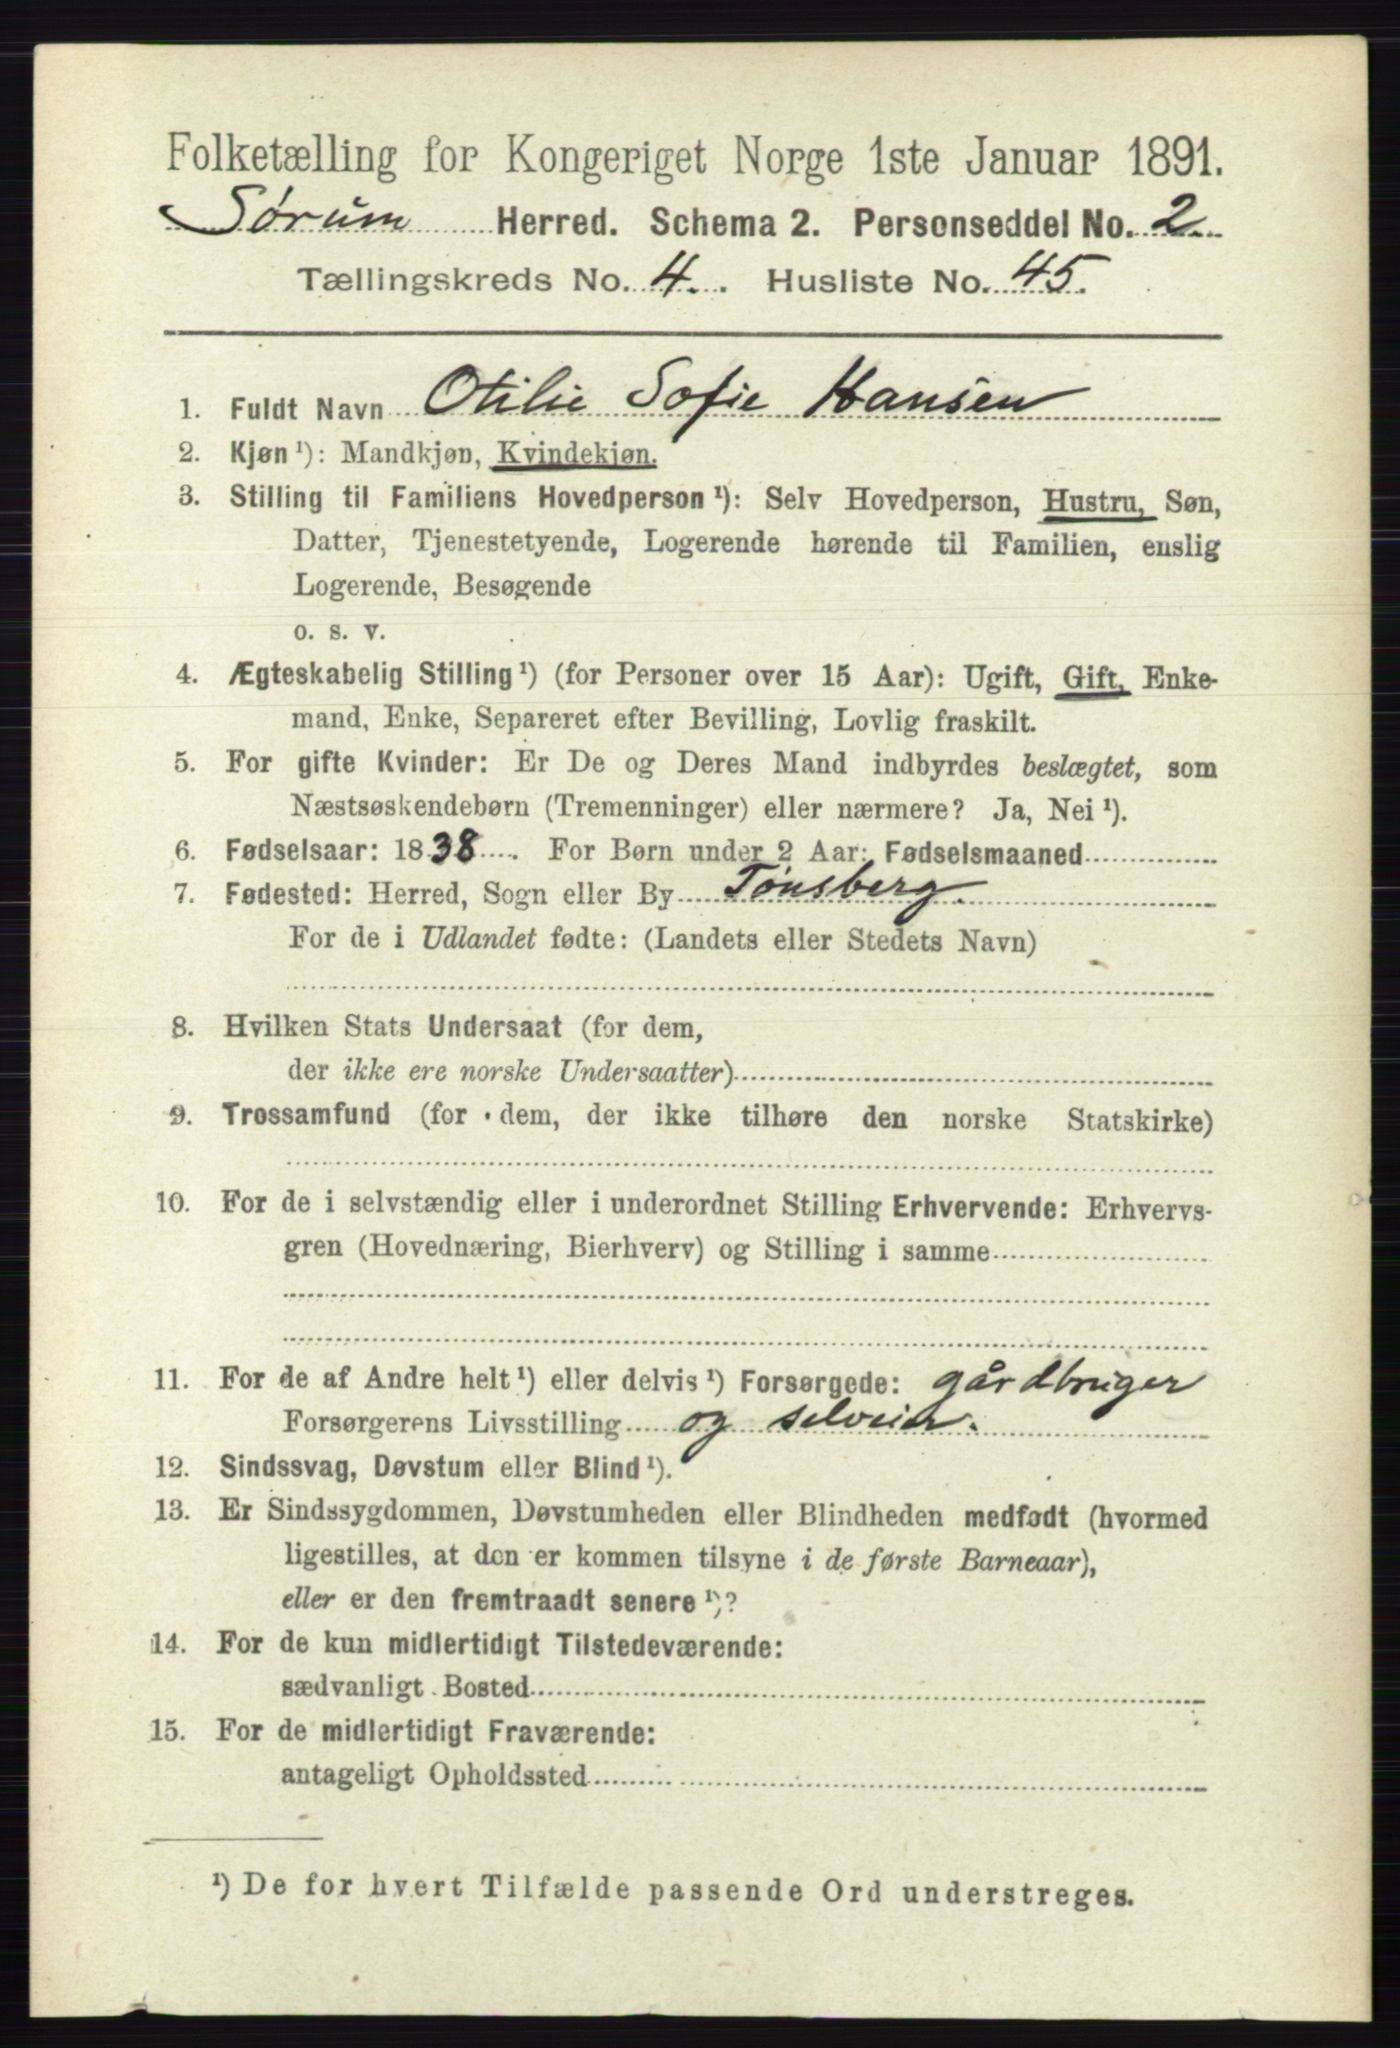 Folketælling for Kongeriget Norge 1ste Januar 1891.
Sørum Herred. Schema 2. Personseddel No. 2
Tællingskreds No. 4. Husliste No. 45.
1. Fuldt Navn Otilie Sofie Hansen
2. Kjøn ¹): Mandkjøn, Kvindekjøn.
3. Stilling til Familiens Hovedperson ¹): Selv Hovedperson, Hustru, Søn,
Datter, Tjenestetyende, Logerende hørende til Familien, enslig
Logerende, Besøgende
o. s. v.
4. Ægteskabelig Stilling ¹) (for Personer over 15 Aar): Ugift, Gift, Enke-
mand, Enke, Separeret efter Bevilling, Lovlig fraskilt.
5. For gifte Kvinder: Er De og Deres Mand indbyrdes beslægtet, som
Næstsøskendebørn (Tremenninger) eller nærmere? Ja, Nei ¹).
6. Fødselsaar: 1838. For Børn under 2 Aar: Fødselsmaaned
7. Fødested: Herred, Sogn eller By Tønsberg.
For de i Udlandet fødte: (Landets eller Stedets Navn)
8. Hvilken Stats Undersaat (for dem,
der ikke ere norske Undersaatter)
9. Trossamfund (for dem, der ikke tilhøre den norske Statskirke)
10. For de i selvstændig eller i underordnet Stilling Erhvervende: Erhvervs-
gren (Hovednæring, Bierhverv) og Stilling i samme
11. For de af Andre helt ¹) eller delvis ¹) Forsørgede: gårdbruger
Forsørgerens Livsstilling og selveier.
12. Sindssvag, Døvstum eller Blind ¹).
13. Er Sindssygdommen, Døvstumheden eller Blindheden medfødt (hvormed
ligestilles, at den er kommen tilsyne i de første Barneaar),
eller er den fremtraadt senere ¹)?
14. For de kun midlertidigt Tilstedeværende:
sædvanligt Bosted
15. For de midlertidigt Fraværende:
antageligt Opholdssted
¹) De for hvert Tilfælde passende Ord understreges.